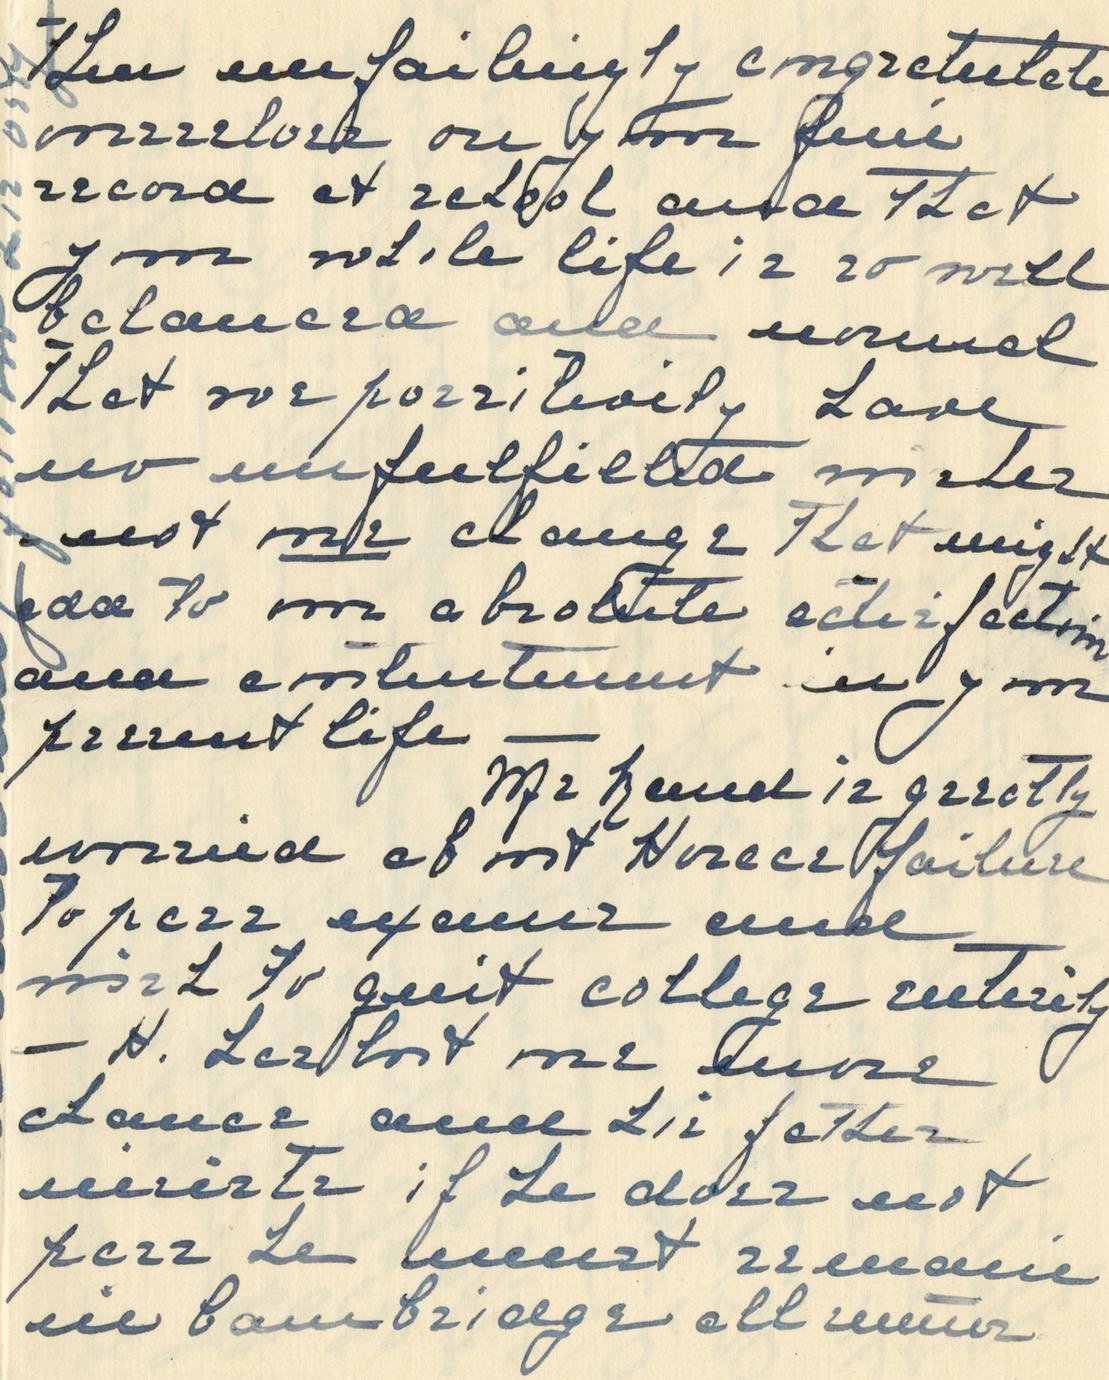 Then unfailingly congratulate
ourselves on your fine
record at school and that
your whole life is so well
balanced and normal
that we positively have
no unfulfilled wishes
- not one change that might
add to our absolute satisfaction
and contentment in your
present life —
Mr Rand is greatly
worried about Horaces failure
to pass exams and
wish to quit college entirely
— H. has but one more
chance and his father
insists if he does not
pass he must remain
in Cambridge all summer